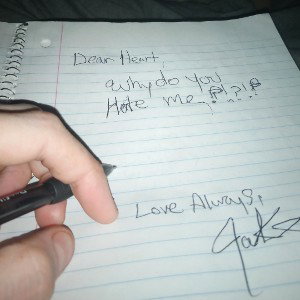 Dear Heart,
Why do you
Hate me ?!?!?
Love Always,